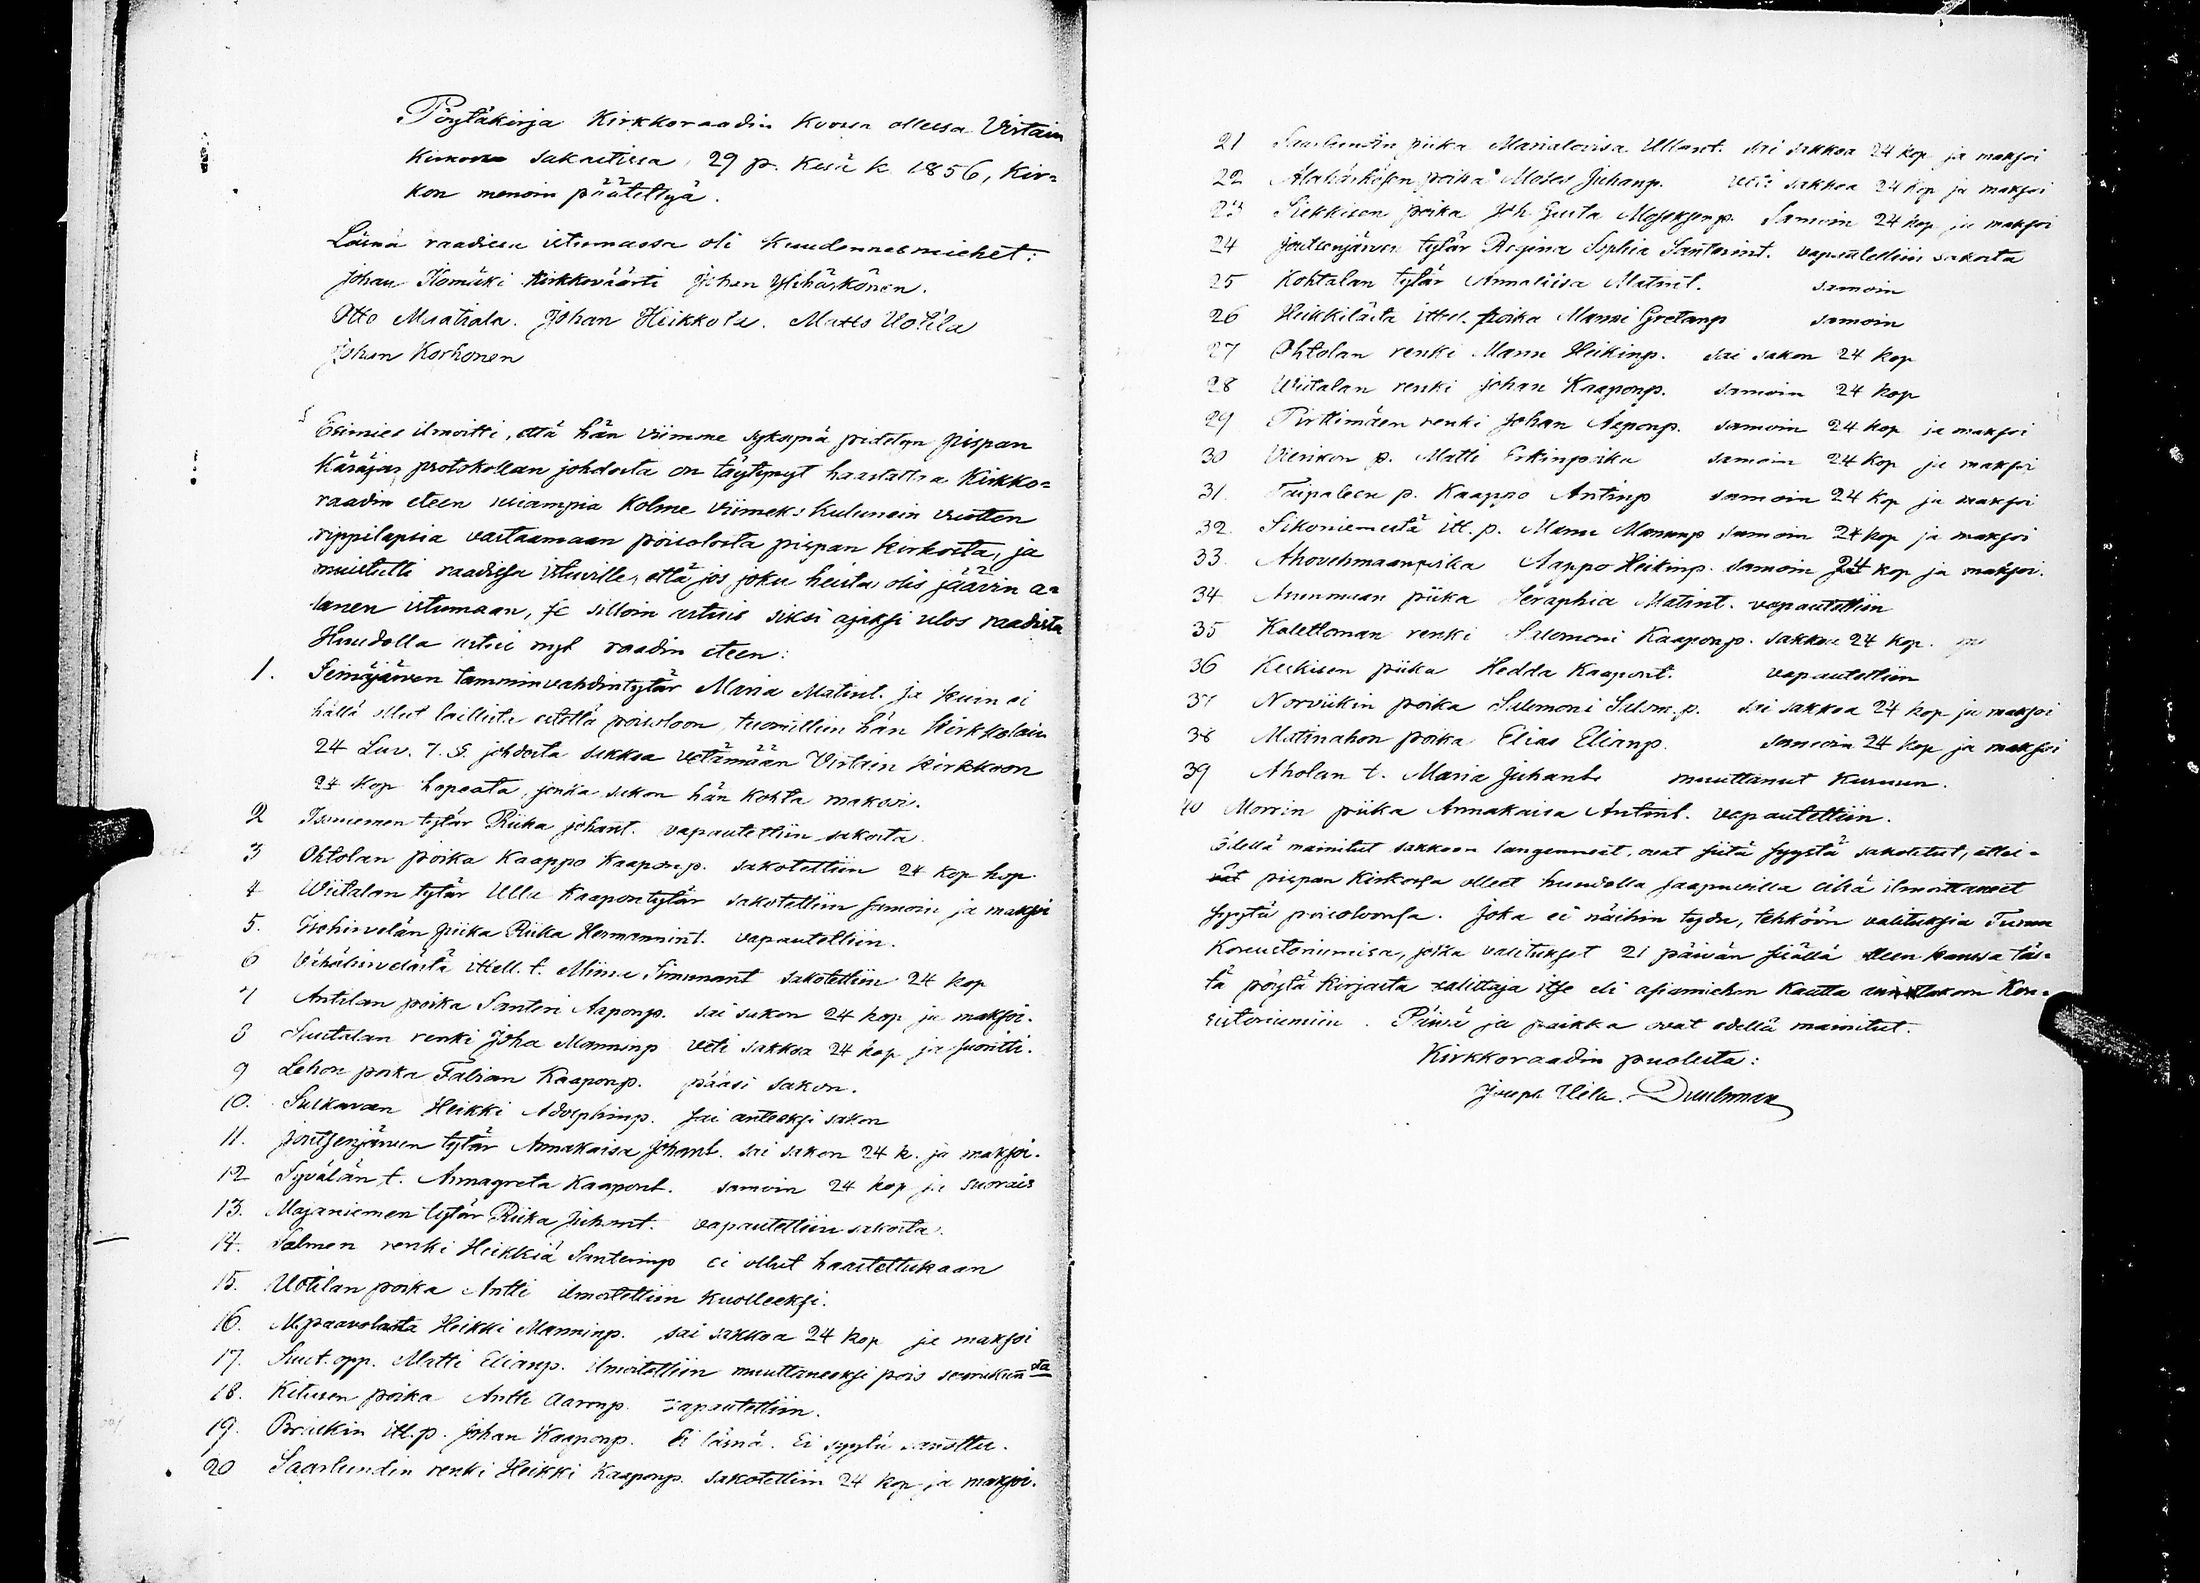 Pöytäkirja Kirkkoraadin Kuosa olleesa Virtain
sakastissa, 29 p. Kesä k. 1856, Kir=
kon menoin päätettyä.
Läsnä raadissa istumassa oli kuudennesmiehet:
Johan Kirkkovääsrti Johan Ylihärkönen.
Otto Maatiala. Johan Heikkola. Matts Uotila
Johan Korhonen
§ Esimies ilmoitti, että hän viimme syksynä pidetyn pispan
Käräjän protokollan johdosta on täytynyt haastattaa Kirkko=
raadin eteen kolme viimeks kulunein vuotten
rippilapsia vastaamaan poisolosta pispan kirkosta, ja
muistutti raadissa istuville, että jos joku heistä olis jäävin a=
lanen istumaan, se silloin astuis siksi ajaksi ulos raadista
Huudolla astui nyt raadin eteen:
1. Seinäjärven tamminvahdintytär Maria Matint. ja kuin ei
hällä ollut laillista estettä poisoloon, tuomittiin hän Kirkkolain
24 Luv. 7. §. johdosta sakkoa vetämään Virtain kirkkoon
24 kop hopeata, jonka sakon hän kohta maksoi.
2 tytär Riika Johant. vapautettiin sakosta
3 Ohtolan poika Kaappo Kaaponp. sakotettiin 24 kop hop.
4 Wiitalan tytär Ulla Kaapontytär sakotettiin samoin ja maksoi
5. Isohirvelän piika Riika Hermannint. vapautettiin.
6 Vähähirvelästä ittell. t. Miina Simunant sakotettiin 24 kop
7 Antilan poika Santeri Aaponp. sai sakon 24 kop ja maksoi.
8 renki Joha Manninp veti sakkoa 24 kop ja suoritti.
9 Lehon poika Fabian Kaaponp. pääsi sakon.
10. Sulkavan Heikki Adolphinp. sai anteeksi sakon
11. Joutsenjärven tytär Annakaisa Johant. sai sakon 24 k. ja maksoi.
12 Syvälän t. Annagreta Kaapont. samoin 24 kop ja suorais
13. Majaniemen tytär Riika Juhant. vapautettiin sakosta.
14. Salmen renki Heikkiä Santerinp ei ollut haastettukaan
15. Uotilan poika Antti ilmoitettiin kuolleeksi.
16. Alapaavolasta Heikki Manninp. sai sakkoa 24 kop ja maksoi
17. Suut. opp. Matti Elianp. ilmoitettiin muuttaneeksi pois seurakunnasta
18. Kitusen poika Antti Aaronp. vapautettiin.
19. itl. p. Johan Kaaponp. Ei läsnä. Ei syytä sanottu.
20 Saarlundin renki Heikki Kaaponp. sakotettiin 24 kop ja maksoi.
21 Saarlundin piika Marialovisa Ullant. sai sakkoa 24 kop ja maksoi
22 Alahärkösen poika Moses Juhanp. veti sakkoa 24 kop ja maksoi
23 Siekkisen poika Joh. Gusta Moseksenp. Samoin 24 kop ja maksoi
24 Joutsenjärven tytär Regina Sophia Santerint. vapautettiin sakosta
25 Kohtalan tytär Annaliisa Matint. samoin
26 Heikkilästä ittel. poika Manni Gretanp samoin
27 Ohtolan renki Mannu Heikinp. sai sakon 24 kop
28 Wiitalan renki Johan Kaaponp. samoin 24 kop
29 Pirttimäen renki Johan Aaponp. samoin 24 kop ja maksoi
30 Vierikon p. Matti Erkinpoika samoin 24 kop ja maksoi
31. Taipaleen p. Kaappo Antinp samoin 24 kop ja maksoi
32. Sikoniemestä itl. p. Mannu Mananp samoin 24 kop ja maksoi
33. Ahovehmaanpoika Aappo Heikinp. samoin 24 kop ja maksoi.
34 piika Seraphia Matint. vapautettiin
35 Kalettoman renki Salomoni Kaaponp. sakkoa 24 kop.
36 Keskisen piika Hedda Kaapont. vapautettiin
37 Norviikin poika Salomoni Salom. p. sai sakkoa 24 kop ja maksoi
38 Matinahon poika Elias Elianp. samoin 24 kop ja maksoi
39 Aholan t. Maria Juhant. muuttanut Kuruun.
40 Morrin piika Annakaisa Antint. vapautettiin.
Edellä mainitut sakkoon langenneet, ovat siitä syystä sakotetut, ettei=
vät pispan Kirkossa olleet huudolla saapuvilla eikä ilmoittaneet
syytä poisoloonsa. Joka ei näihin tydy, tehköön valituksia Turun
Konsistoriumisa, jotka valitukset 21 päivän sisällä ynnä kanssa täs=
tä pöytä kirjasta valittaja itse eli asiamiehen kautta Kon=
sistoriumiin. Päivä ja paikka ovat edellä mainitut.
Kirkkoraadin puolesta:
Joseph Wilh. Durchman